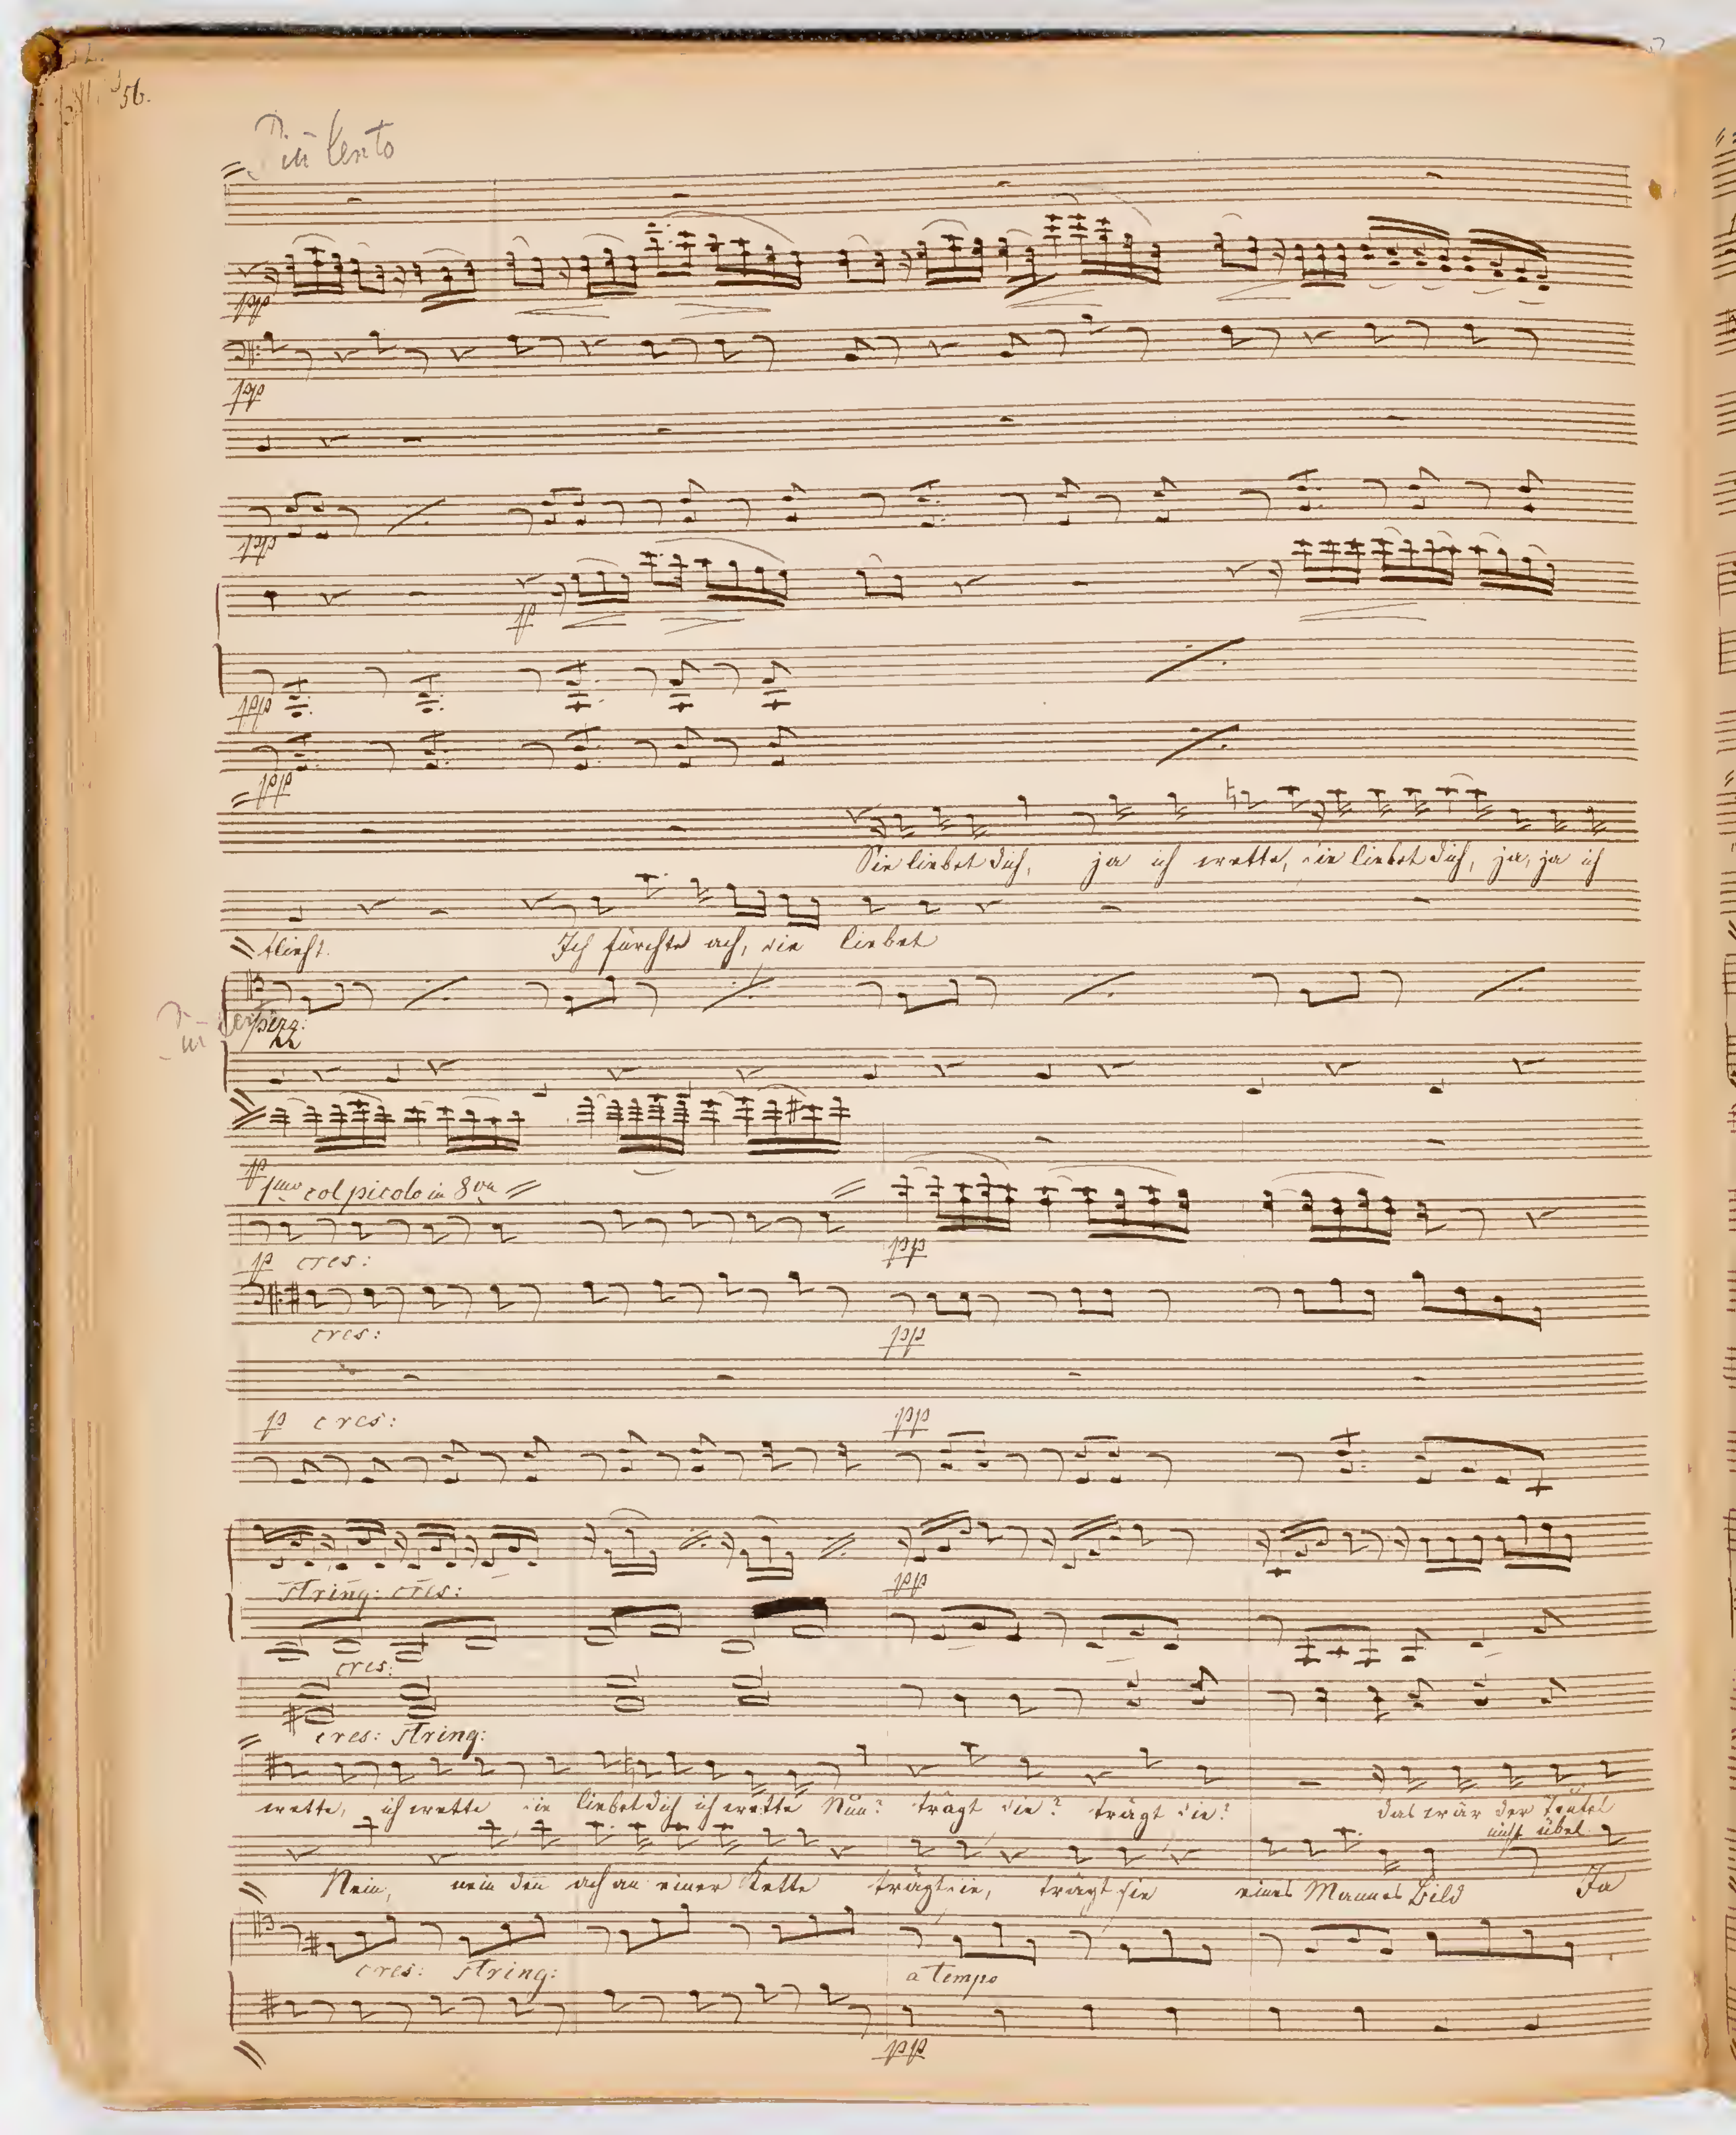 56.
Piu lento
pp
pp
pp
p
pp
pp
Sie liebet dich, ja ich wette, sie liebet dich, ja, ja ich
flieht. Ich fürchte ach, sie liebet
Piu lento
p
1mo col picolo in 8va
p cres: pp
cres: pp
p cres: pp
string: cres: pp
cres:
cres: string:
wette, ich wette sie liebet dich ich wette Nun? trägt sie? trägt sie? das wär der Teufel
nicht übel
Nein, nein den ach an einer Kette trägt sie, trägt sie eines Mannes Bild Ja
cres: string: a tempo
pp